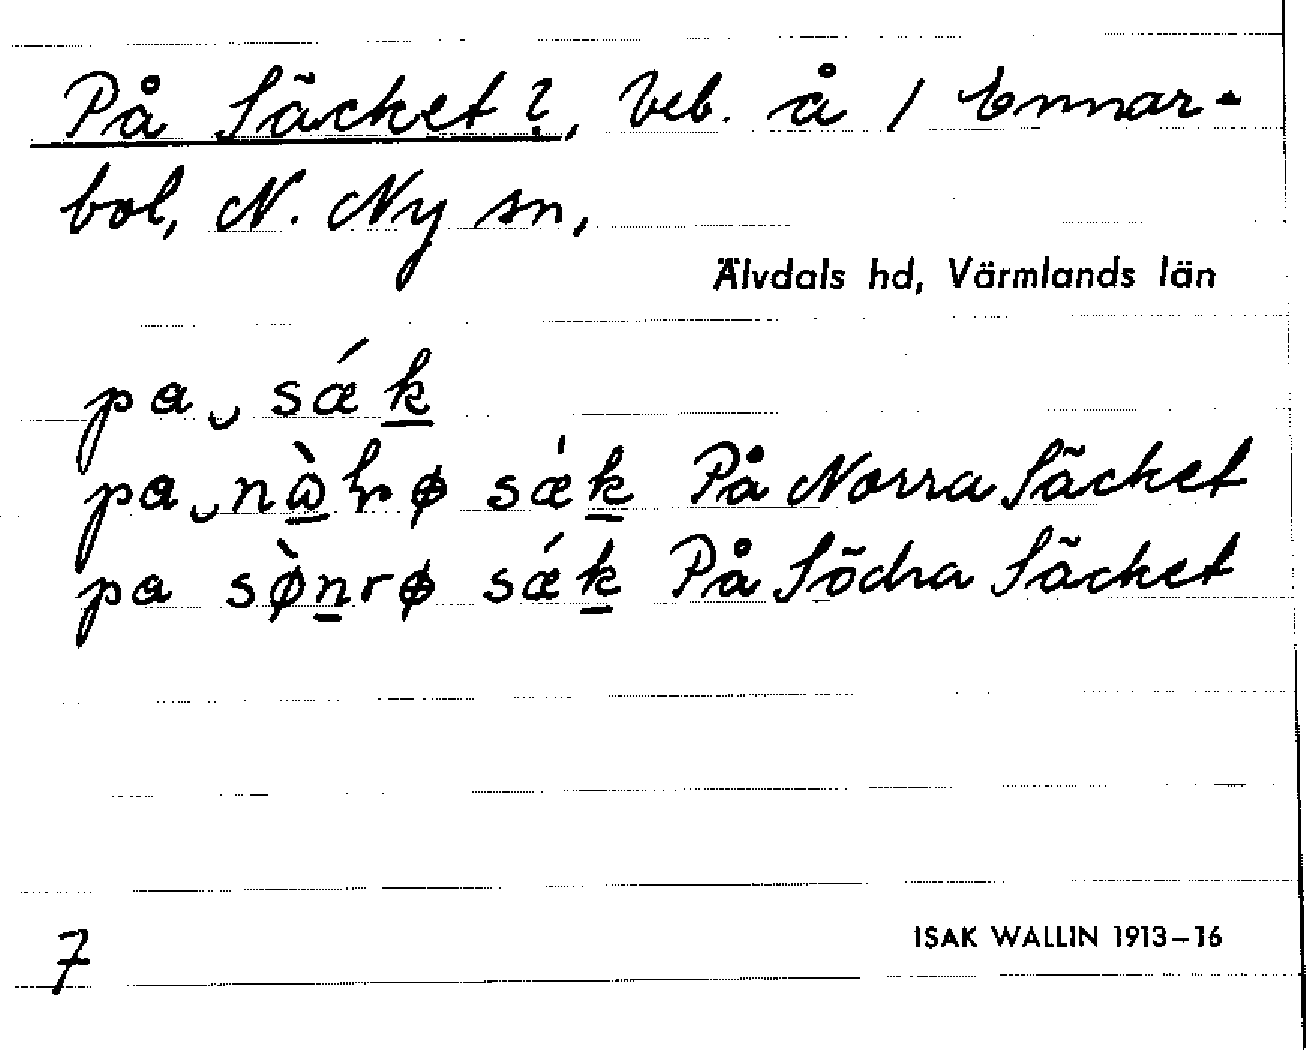 På Säcket?, beb. å 1 Ennar-
bol, N. Ny sn,
Älvdals hd, Värmlands län
pa‿sǽk̲
pa‿nὼ̲hrø sǽk̲ På Norra Säcket
pa sø̀n̲rø sǽk̲ På Södra Säcket
7
ISAK WALLIN 1913–16